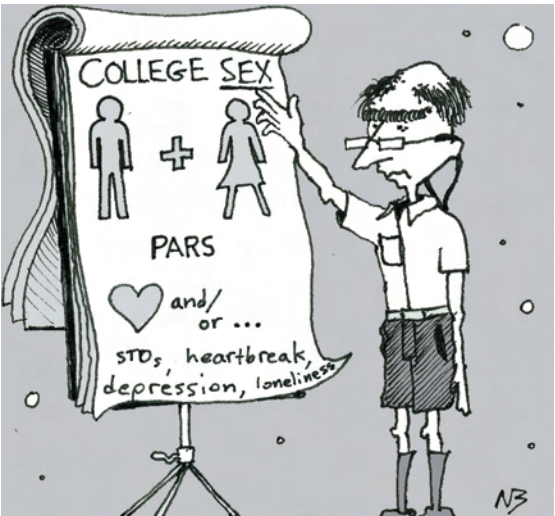 COLLEGE SEX
+
PARS
and/
or ...
STDs, heartbreak,
depression, loneliness
NB